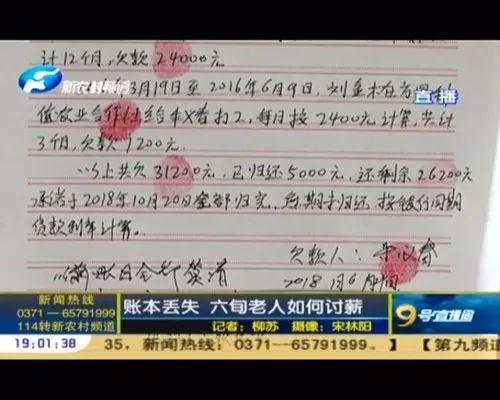 计12个月,欠款24000元。
新农村频道
直播
年3月19日至2016年6月9日,
农业合作社给 打工,每月按2400元计算,共计
3个月,欠款7200元。
以上共欠31200元,已归还5000元,还剩余26200元
承诺于2018年10月20日全部归完,逾期未归还,按银行同期
贷款利率计算。
欠款人:
2018年6月
新闻热线
0371—65791999
114转新农村频道
账本丢失 六旬老人如何讨薪
记者:柳苏 摄像:宋林阳
9号直播间
19:01:38
35. 新闻热线:0371—65791999。】 【第九频道